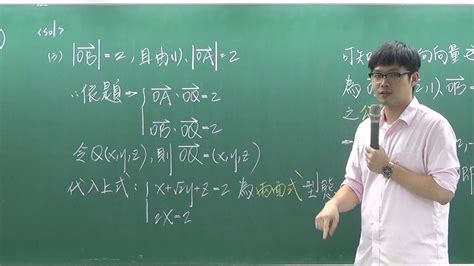 <sol>
(3) |OB|=2, 且由(1), |OA|=2
∴依題→{OA·OQ=2
OB·OQ=2
令Q(x,y,z), 則 OQ=(x,y,z)
代入上式:{x+√2y+z=2 為兩面式型態
2x=2
可知 向向量之
為 (1), OB=
之
即